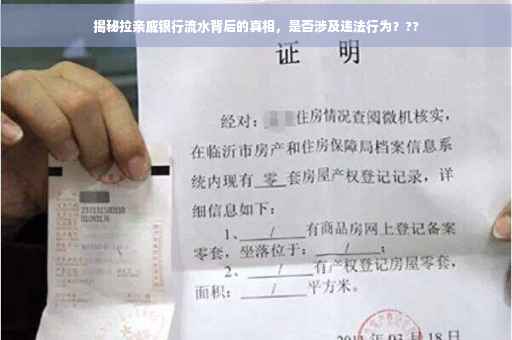 揭秘拉亲戚银行流水背后的真相，是否涉及违法行为？??
证 明
经对：住房情况查阅微机核实，
在临沂市房产和住房保障局档案信息系
统内现有 零 套房屋产权登记记录，详
细信息如下：
1、 / 有商品房网上登记备案
零套，坐落位于： / ；
2、 / 有产权登记房屋零套，
面积： / 平方米。
03 月 18 日